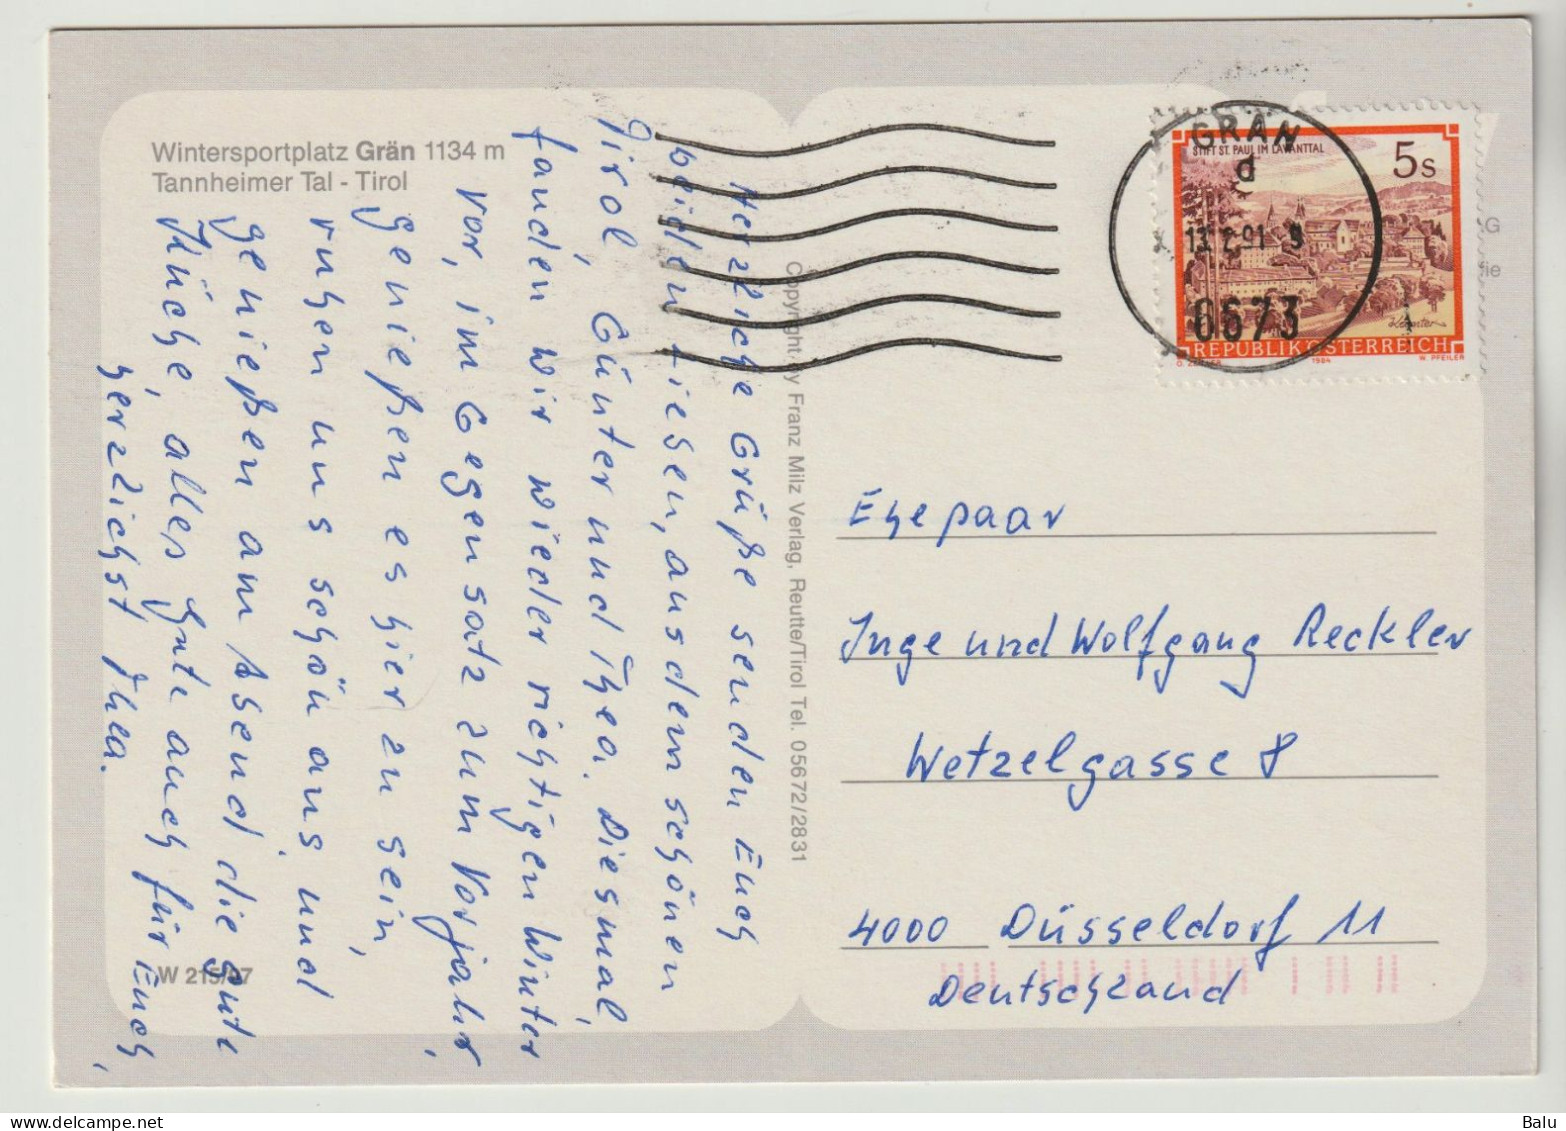 Wintersportplatz Grän 1134 m
Tannheimer Tal - Tirol
Herzliche Grüße senden Euch
beiden Liesen, aus dem schönen
Tirol, Günter und Thea. Diesmal,
fanden wir wieder richtigen Winter
vor, im Gegensatz zum Vorjahr,
genießen es hier zu sein,
ruhen uns schön aus, und
genießen am Abend die gute
Küche, alles Gute auch für Euch,
herzlichst Thea.
W 215/97
Copyright by Franz Milz Verlag, Reutte/Tirol Tel. 05672/2831
GRÄN
d
13. 2. 91 9
6673
STIFT ST. PAUL IM LAVANTTAL
5s
REPUBLIK ÖSTERREICH
1984 W. PFEILER
G
fie
Ehepaar
Inge und Wolfgang Reckler
Wetzelgasse 8
4000 Düsseldorf 11
Deutschland
Balu